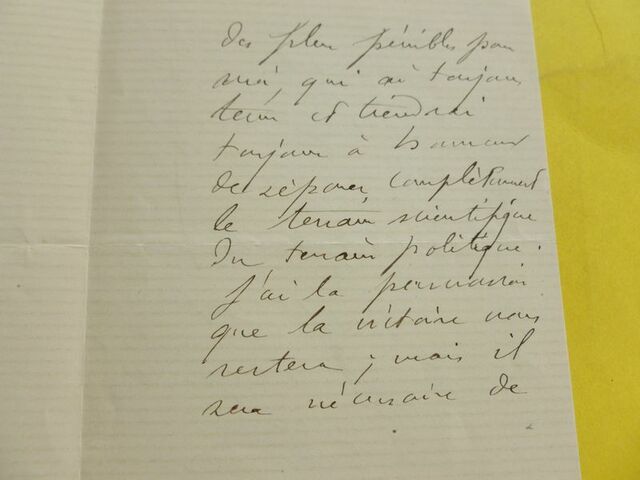 des plus pénibles pour
moi, qui ai toujours
tenu et tiendrai
toujours à honneur
de séparer complètement
le terrain scientifique
du terrain politique.
J'ai la persuasion
que la victoire nous
restera ; mais il
sera nécessaire de